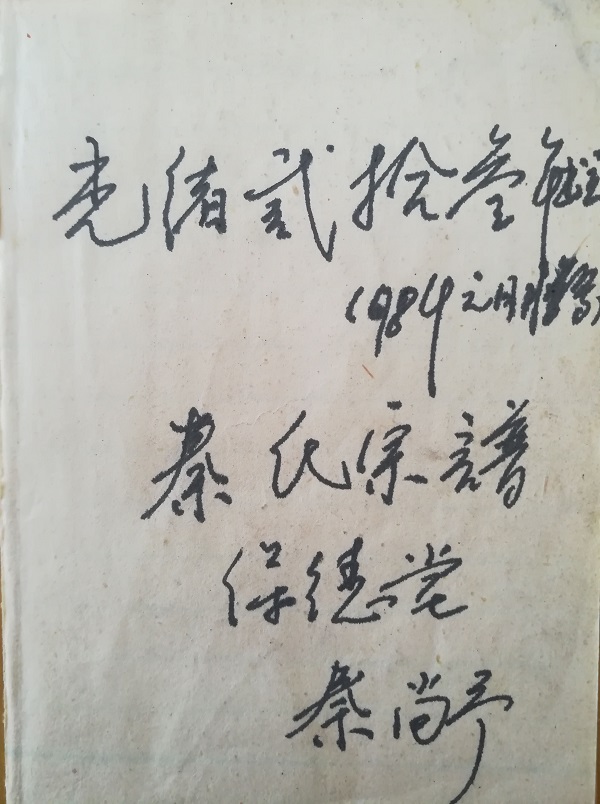 光绪贰拾叁年
1984元月
秦氏宗譜
保德堂
秦尚